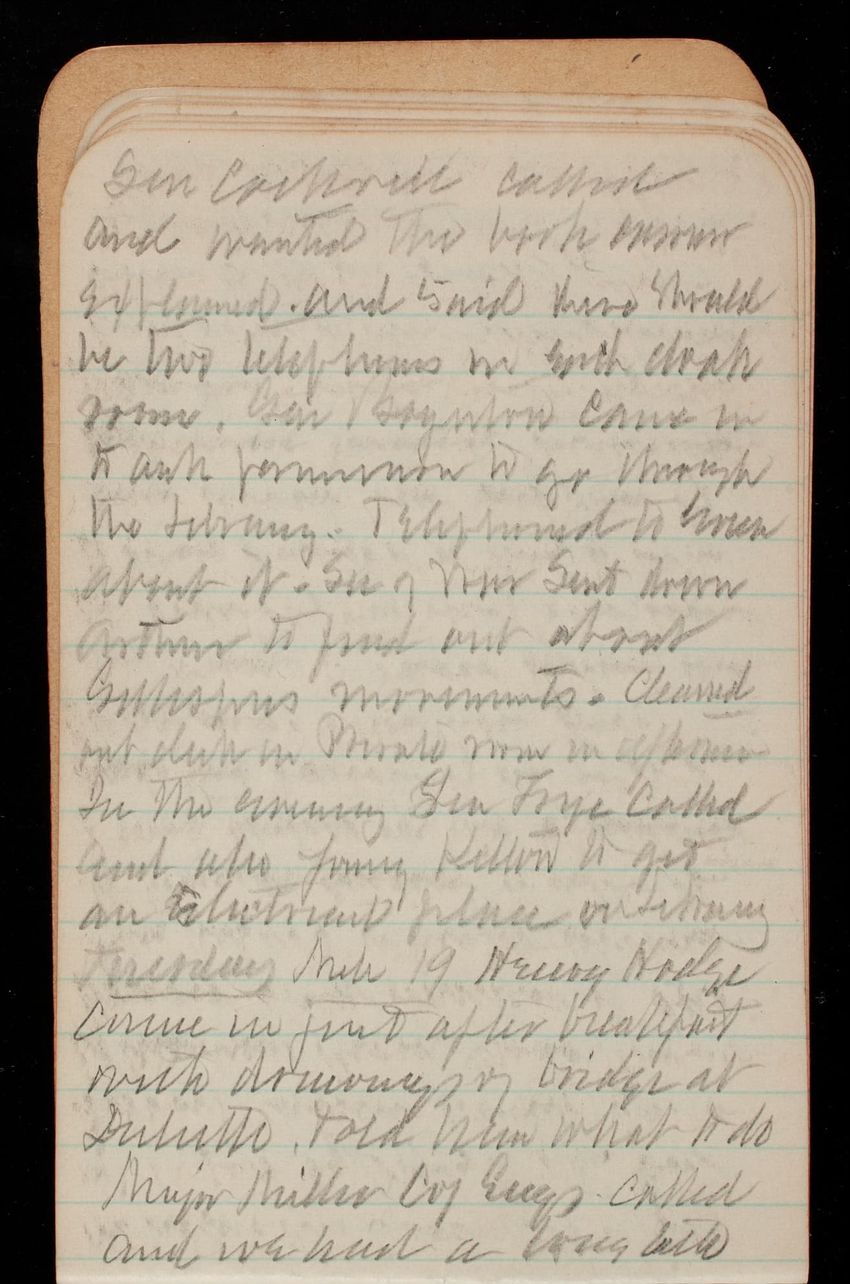 Sen Cockrell called
and wanted the book
explained. and said there should
be two telephones in each cloak
room. Gen Boynton came in
to ask permission to go through
the Library. Telephoned to Green
about it. Sec of War Sent down
Arthur to find out about
Gillespies movements. Cleaned
out desk in Private room in afternoon
In the evening Gen Frye Called
and also young Kellow to get
an Electrical place on Library
Tuesday Mch 19 Henry Hodge
came in just after breakfast
with drawings of bridge at
Duluth. Told him what to do
Major Miller Cof Engs. called
and we had a long talk